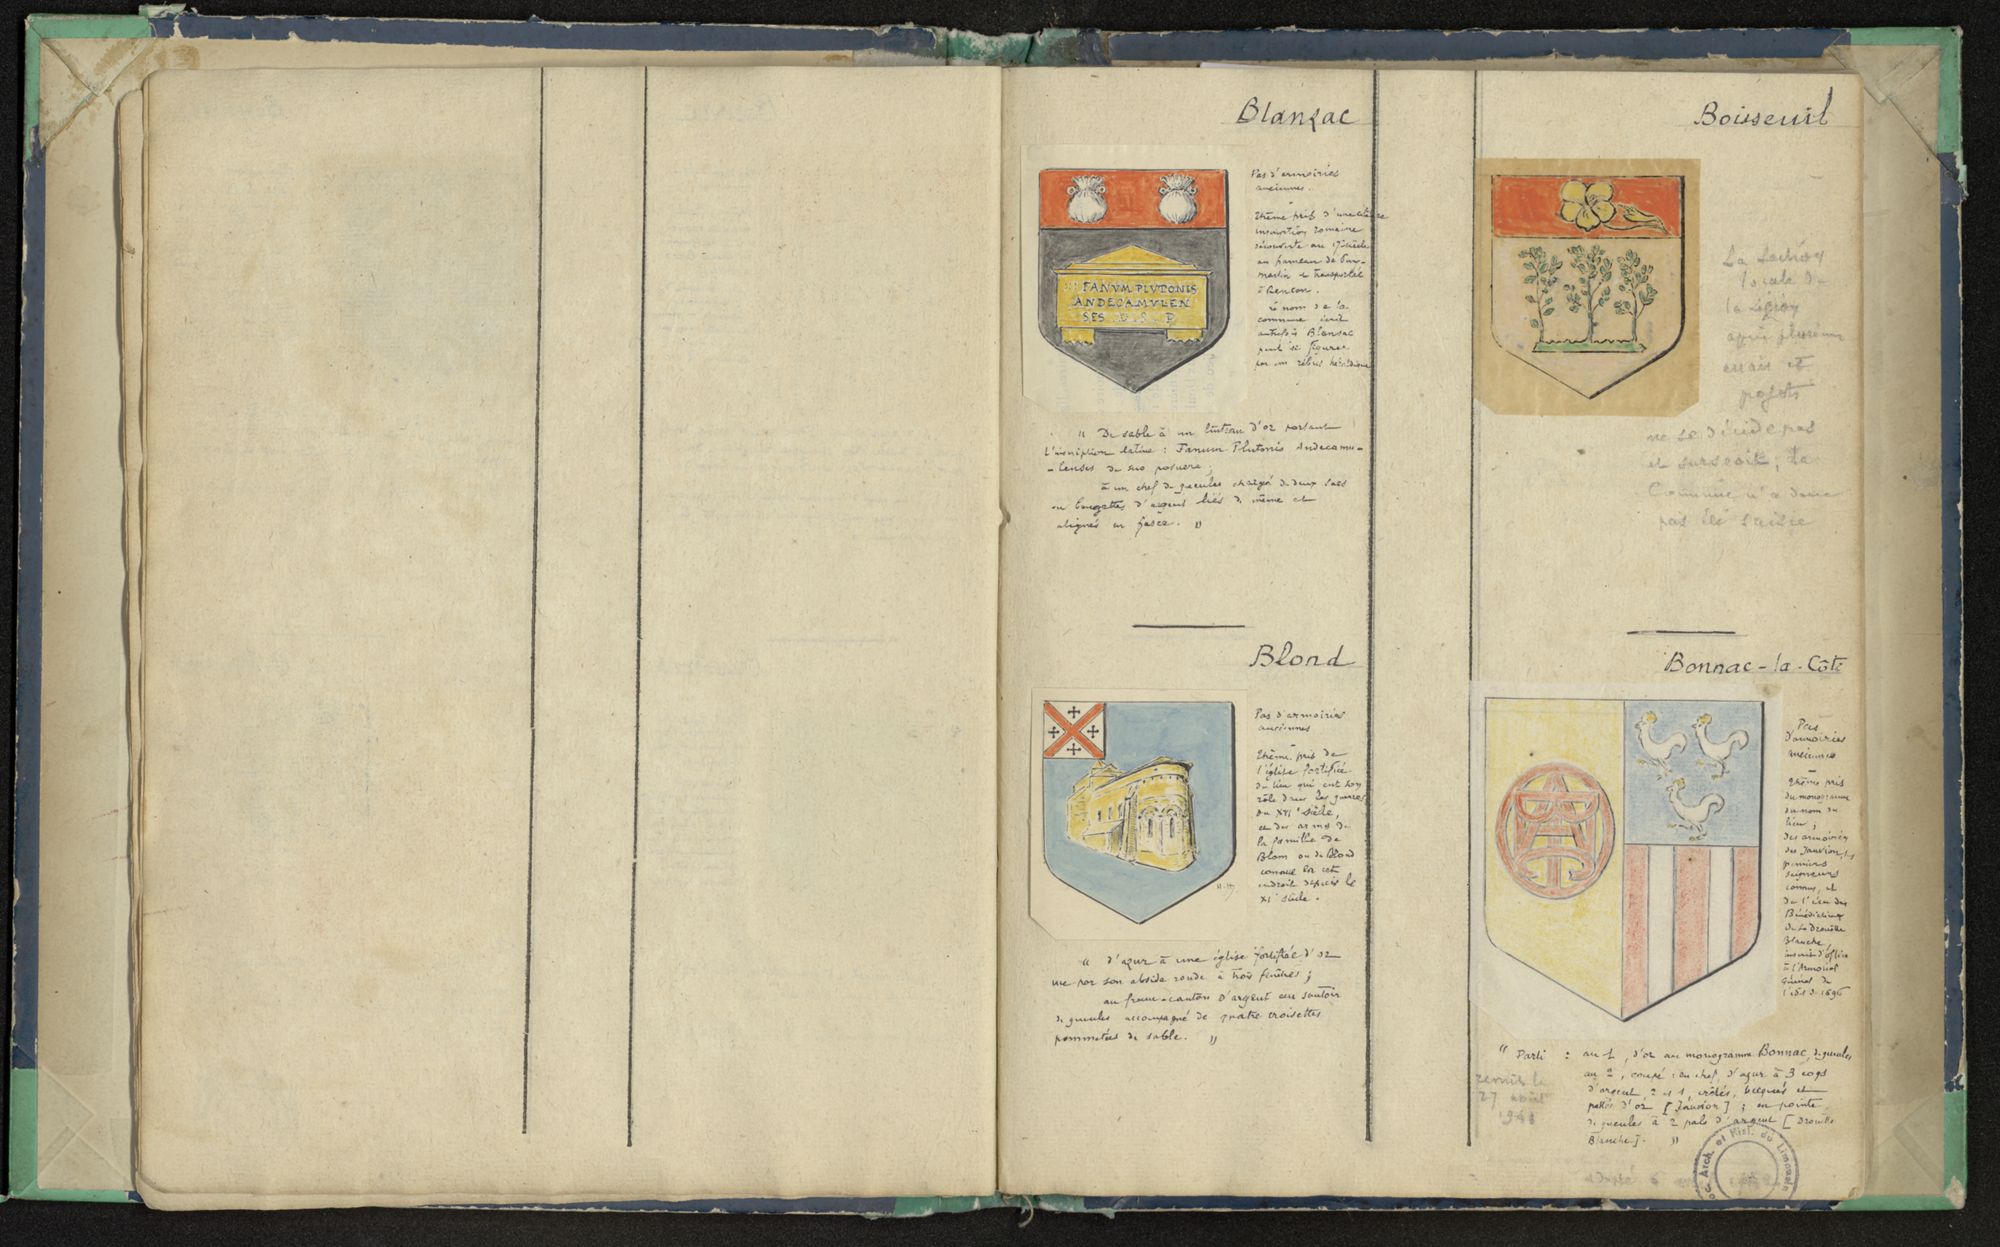 Blanzac
Pas d'armoiries
anciennes.
Thème pris d'une
inscription romaine
découverte au 17e siècle
au hameau de
Martin et transportée
à Rancon.
Le nom de la
commune écrit
autrefois Blansac
peut se figurer
par un rébus héraldique
FANVM PLVTONIS
ANDECAMVLEN
SES D. S. P
" De sable à un linteau d'or portant
l'inscription latine : Fanum Plutonis Andecamu-
-lenses de suo posuere ;
à un chef de gueules chargé de deux sacs
ou bougettes d'argent liés de même et
alignés en fasce. "
Blond
Pas d'armoiries
anciennes
Thème pris de
l'église fortifiée
du lieu qui eut son
rôle dans les guerres
du XVIe siècle,
et des armes de
la famille de
Blom ou de Blond
connue en cet
endroit depuis le
XIe siècle.
" d'azur à une église fortifiée d'or
vue par son abside ronde à trois fenêtres ;
au franc-canton d'argent au sautoir
de gueules accompagné de quatre croisettes
pommetées de sable. "
Boisseuil
La section
locale de
la Légion
après plusieurs
essais et
projets
ne se décide pas
et surseoit ; la
Commune n'a donc
pas été saisie
Bonnac-la-Côte
Pas
d'armoiries
anciennes
Thème pris
du monogramme
du nom du
lieu ;
des armoiries
des Jauvion, les
premiers
seigneurs
connus, et
de l'écu des
Bénédictins
de La Drouille
Blanche,
inscrit d'office
à l'Armorial
Général de
1696
" Parti : au 1, d'or au monogramme Bonnac, de gueules
au 2, coupé : en chef, d'azur à 3 coqs
d'argent, 2 et 1, crêtés, becqués et
pattés d'or [Jauvion] ; en pointe,
de gueules à 2 pals d'argent [Drouille
Blanche]. "
remis le
27 août
Arch. et Hist. du Limousin